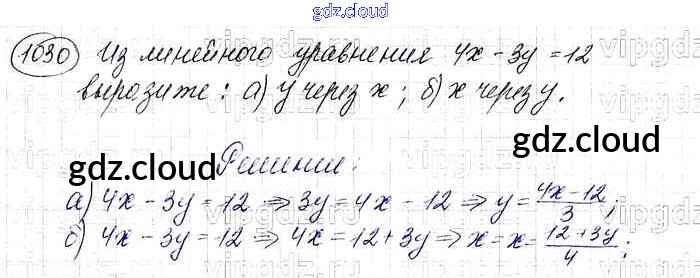 gdz.cloud
1030 Из линейного уравнения 4x - 3y = 12
выразите: а) y через x; б) x через y.
gdz.cloud
gdz.cloud Решение:
а) 4x - 3y = 12 ⇒ 3y = 4x - 12 ⇒ y = (4x - 12)/3;
б) 4x - 3y = 12 ⇒ 4x = 12 + 3y ⇒ x = x = (12 + 3y)/4;
gdz.cloud